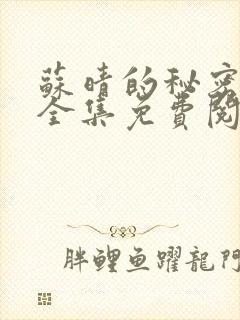 蘇晴的秘密
全集免費閱
胖鯉魚躍龍門